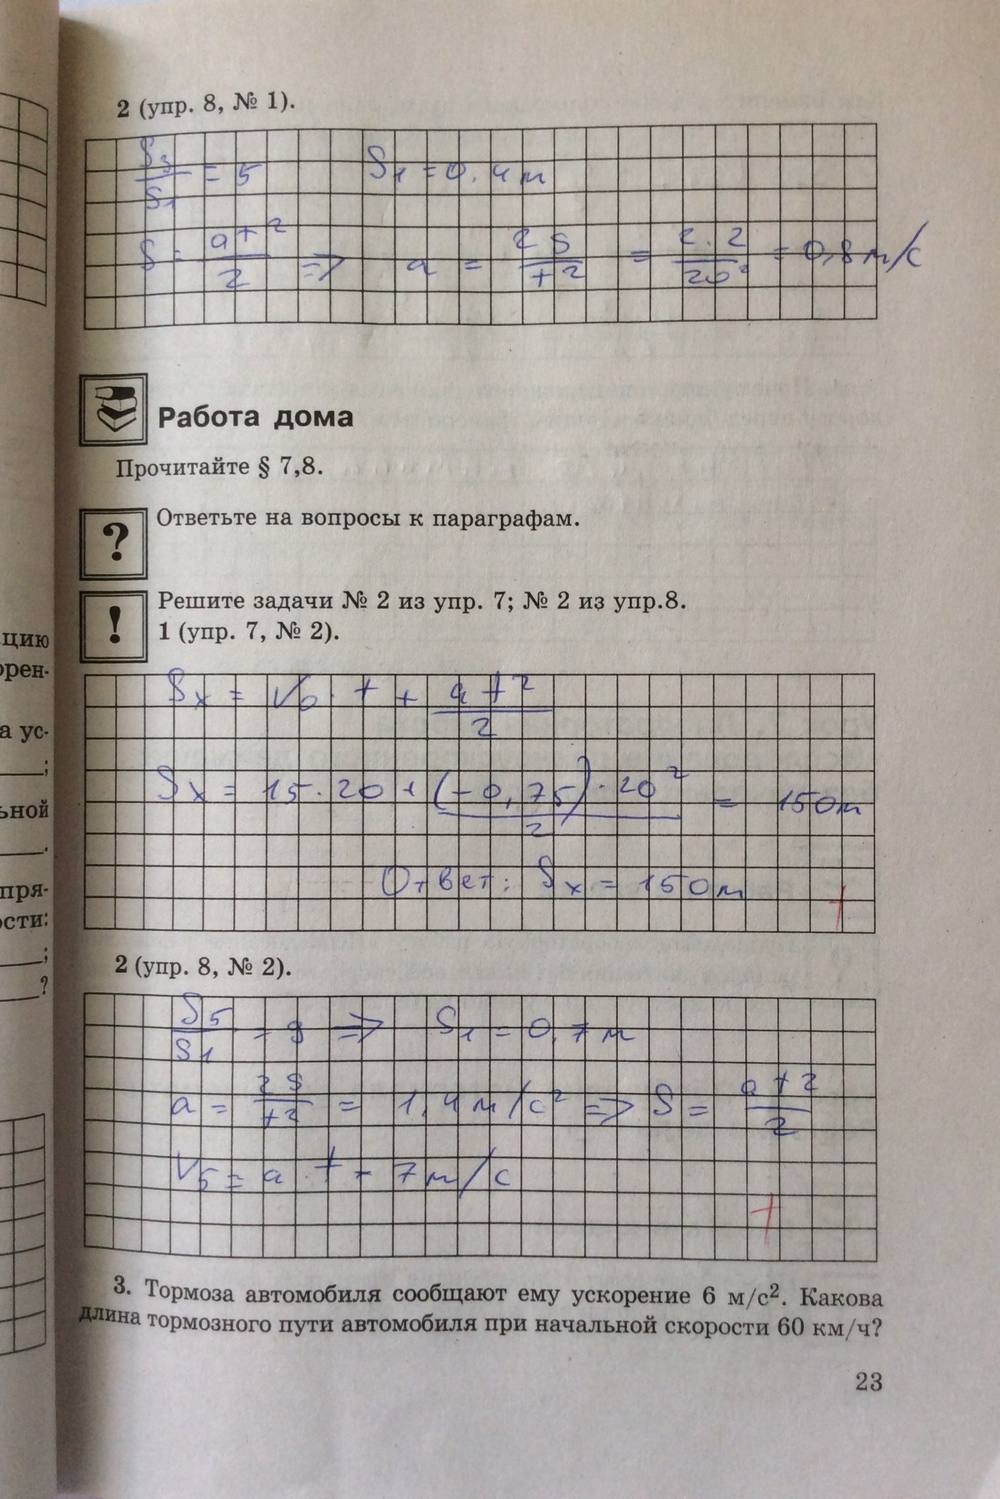 2 (упр. 8, № 1).
S₃/S₁ = 5 S₁ = 0,4 м
S = at²/2 => a = 2S/t² = 2·2/20² = 0,8 м/с
Работа дома
Прочитайте § 7,8.
?
Ответьте на вопросы к параграфам.
!
Решите задачи № 2 из упр. 7; № 2 из упр.8.
1 (упр. 7, № 2).
Sₓ = V₀ · t + at²/2
Sₓ = 15·20 + (-0,75)·20²/2 = 150м
Ответ: Sₓ = 150м
2 (упр. 8, № 2).
S₅/S₁ = 9 => S₁ = 0,7 м
a = 2S/t² = 1,4 м/с² => S = at²/2
V₅ = a · t = 7 м/с
3. Тормоза автомобиля сообщают ему ускорение 6 м/с². Какова
длина тормозного пути автомобиля при начальной скорости 60 км/ч?
23
цию
орен-
а ус-
;
ьной
.
пря-
ости:
;
?